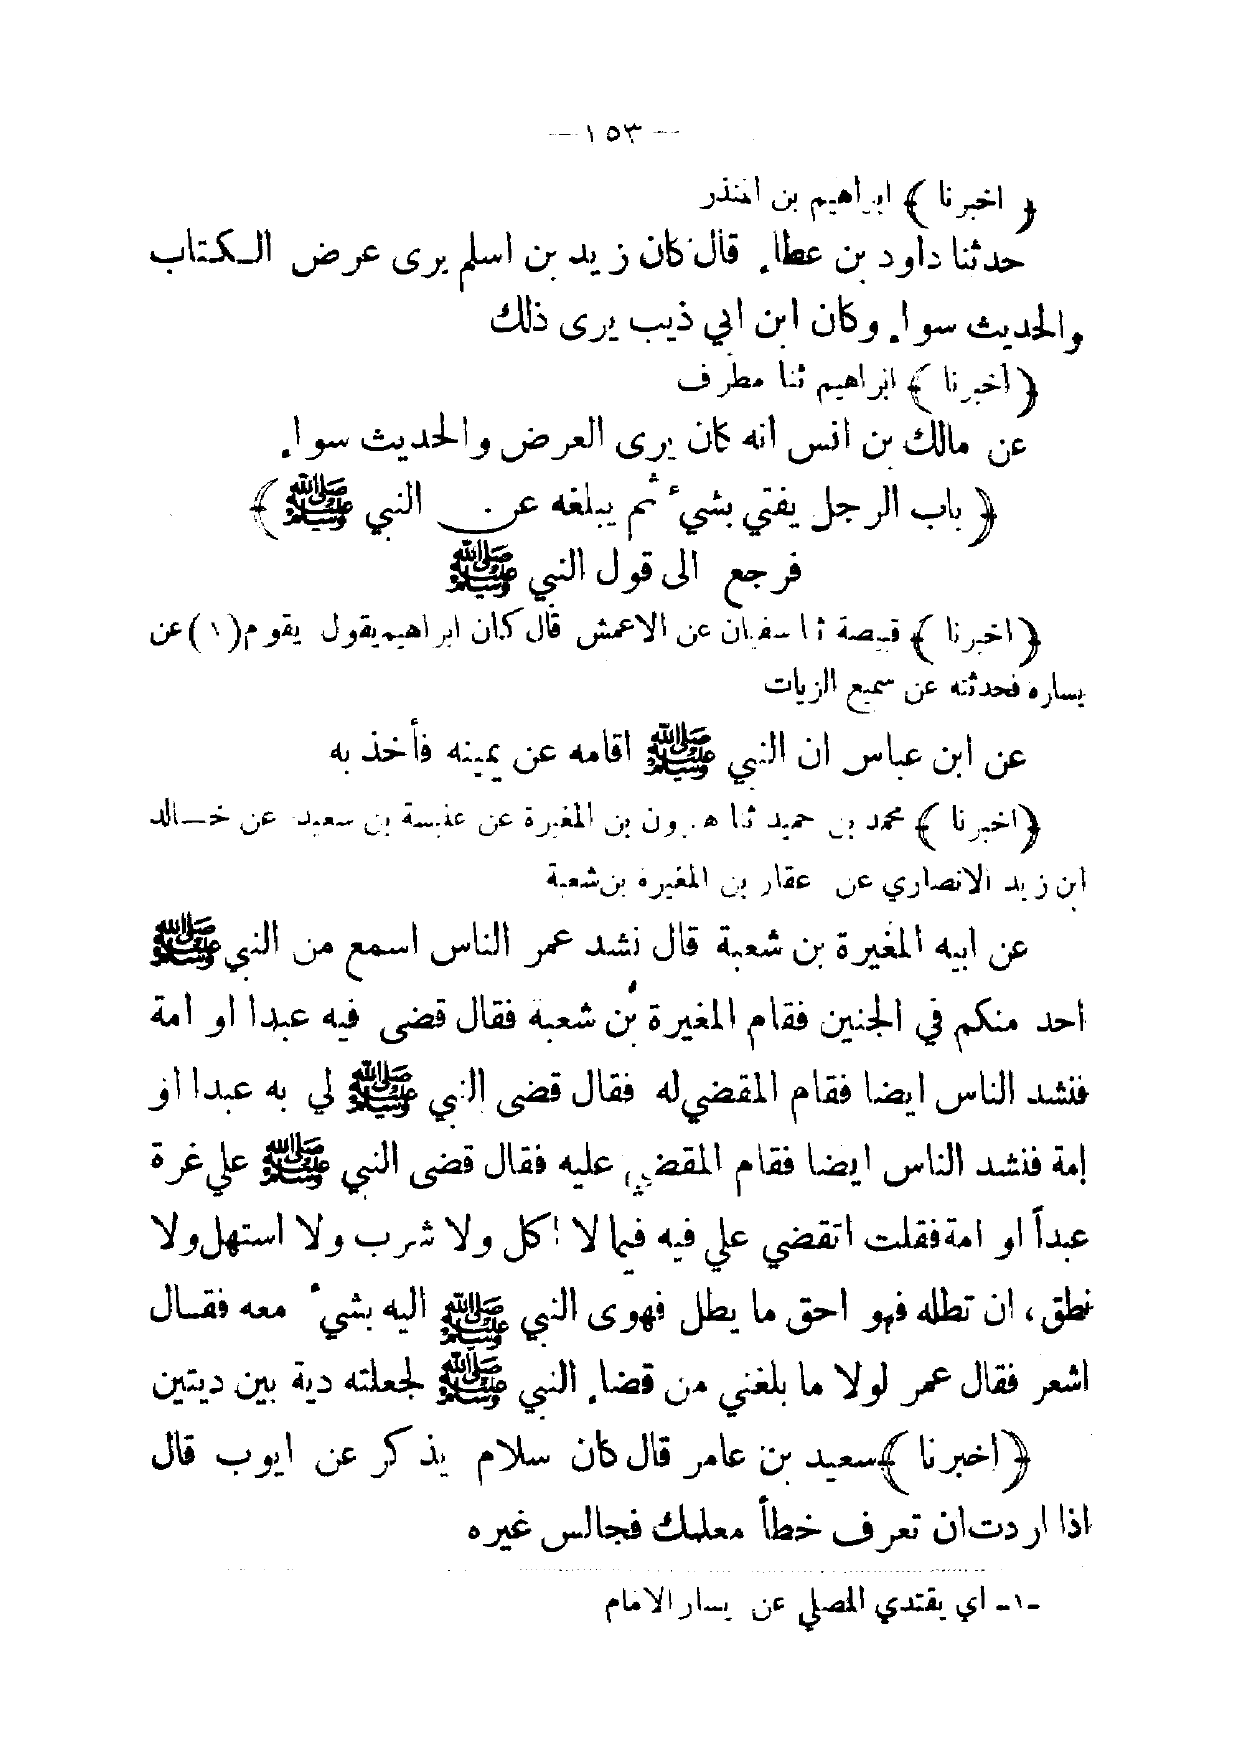 — ١٥٣ —
﴿ اخبرنا ﴾ ابراهيم بن المنذر
حدثنا داود بن عطاء قال كان زيد بن اسلم يرى عرض الكتاب
والحديث سواء وكان ابن ابي ذيب يرى ذلك
﴿ أخبرنا ﴾ ابراهيم ثنا مطرف
عن مالك بن انس انه كان يرى العرض والحديث سواء
﴿ باب الرجل يفتي بشيء ثم يبلغه عن النبي ﷺ ﴾
فرجع الى قول النبي ﷺ
﴿ اخبرنا ﴾ قبيصة انا سفيان عن الاعمش قال كان ابراهيم يقول يقوم(١) عن
يساره فحدثته عن سميع الزيات
عن ابن عباس ان النبي ﷺ اقامه عن يمينه فأخذ به
﴿اخبرنا ﴾ محمد بن حميد ثنا هرون بن المغيرة عن عنبسة بن سعيد عن خالد
ابن زيد الانصاري عن عقار بن المغيرة بن شعبة
عن ابيه المغيرة بن شعبة قال نشد عمر الناس اسمع من النبي ﷺ
احد منكم في الجنين فقام المغيرة بن شعبة فقال قضى فيه عبدا او امة
فنشد الناس ايضا فقام المقضي له فقال قضى النبي ﷺ لي به عبدا او
امة فنشد الناس ايضا فقام المقضي عليه فقال قضى النبي ﷺ علي غرة
عبداً او امة فقلت اتقضي علي فيه فيما لا اكل ولا شرب ولا استهل ولا
نطق، ان تطله فهو احق ما يطل فهوى النبي ﷺ اليه بشيء معه فقال
اشعر فقال عمر لولا ما بلغني من قضاء النبي ﷺ لجعلته دية بين ديتين
﴿اخبرنا ﴾ سعيد بن عامر قال كان سلام يذكر عن ايوب قال
اذا اردت ان تعرف خطأ معلمك فجالس غيره
-١- اي يقتدي المصلي عن يسار الامام